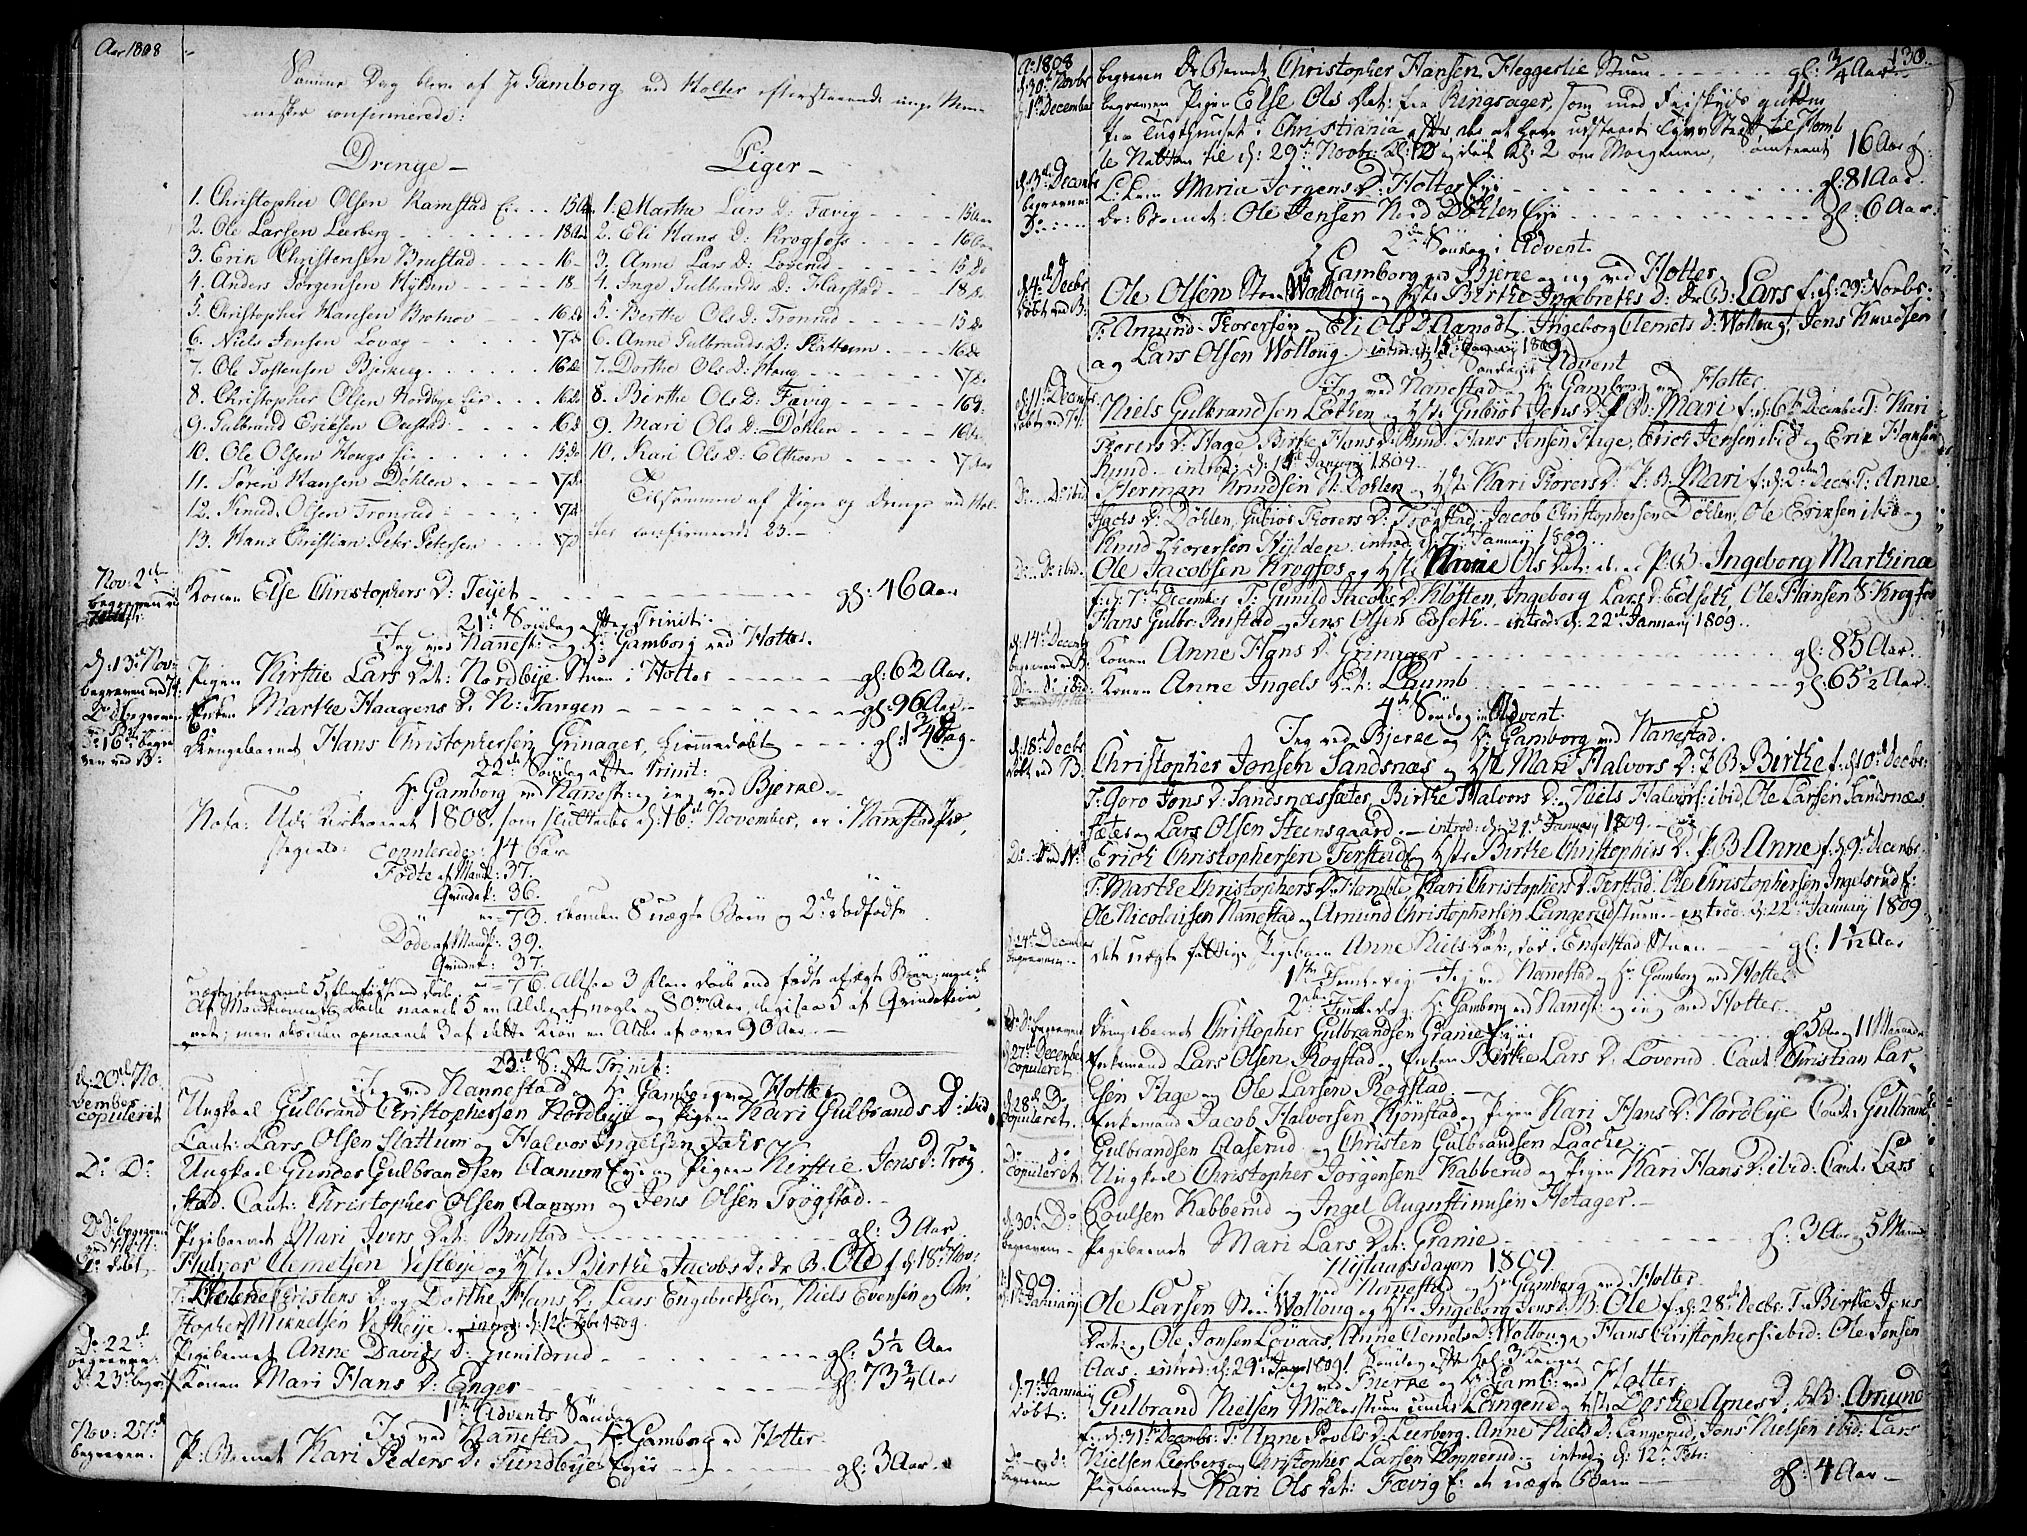 Aar 1808
Samme Dag bleve af Hr Gamborg ved Holter efterstaaende unge Men-
nesker confirmerede:
Drenge
1. Christopher Olsen Ramstad Eie 15 Aar
2. Ole Larsen Leerberg 18 Aar
3. Erik Christensen Brustad 16
4. Anders Jörgensen Hylden 18
5. Christopher Hansen Brotnov 16 do
6. Niels Jensen Lovag 17 do
7. Ole Tostensen Bjerkeg 16 do
8. Christopher Olsen Nordbye Eie 16 do
9. Gulbrand Eriksen Oustad 16 d
10. Ole Olsen Hougs Eie 15 do
11. Sören Hansen Döhlen 17 d
12. Knud Olsen Tronrud 17 d
13. Hans Christian Petr Petersen 17 d
Piger
1. Marthe Lars D: Fævig 15 Aar
2. Eli Hans D: Krogfoss 16 Aar
3. Anne Lars D: Loverud 15 do
4. Inge Gulbrands D: Harstad 18 do
5. Berthe Ols D: Tronrud 15 do
6. Anne Gulbrands D: Slattum 16 do
7. Dorthe Ols D: Houg 17 do
8. Birthe Ols D: Fævig 16 d:
9. Mari Ols D: Döhlen 16 Aar
10. Kari Ols D: Elstoen 17 Aar
Tilsammen af Piger og Drenge ved Hol-
ter confirmerede 23.
Nov: 2den begraven ved Holter Konen Else Christophers D: Teyet gl: 46 Aar
21de Söndag efter Trinit:
Jeg ved Nannest: og Hr Gamborg ved Holter.
d: 13de Nov: begraven ved H: Pigen Kirstie Lars Dat: Nordbye Stuen i Holter gl: 62 Aar.
Do begraven Enken Marthe Haagens D: N: Tangen gl: 96 Aar
d: 16de begraven ved B: Drengebarnet Hans Christophersen Grinager, hiemmedöbt gl: 1 3/4 Dag
22de Söndag efter Trinit:
Hr Gamborg ved Nannest: og jeg ved Bjerke.
Nota: Udi Kirkeaaret 1808, som sluttedes d: 16de November, er i Nannestad Præ-
stegield: Copulerede: 14 Par
Födte af Mandk: 37.
Qvindek: 36.
73. desuden 8 uægte Börn og 2de dödfödte
Döde af Mandk: 39.
Qvindek: 37.
76. Altsaa 3 flere döde end födte af ægte Börn; men de
uægte iberegnet 5 flere födte end döde
Af Mandkionnets Döde naaede 5 en Alder af nogle og 80 Aar, ligesaa 5 af Qvindekiön-
net; men desuden opnaaede 3 af dette Kiön en Alder af over 90 Aar.
23de S: efter Trinit:
d: 20de November copuleret
Jeg ved Nannestad og Hr Gamborg ved Holter
Ungkarl Gulbrand Christophersen Nordbye og Pigen Kari Gulbrands D: ibid
Caut: Lars Olsen Slattum og Halvor Ingelsen Dahr
Do Do Ungkarl Gunder Gulbrandsen Aanum Eye og Pigen Kirstie Jens D: Trög-
stad. Caut: Christopher Olsen Aanum og Jens Olsen Trögstad.
Do Do begraven ved Holt: Pigebarnet Mari Ivers Dat: Brustad gl: 3 Aar
Do döbt, Halvor Clemetsen Vestbye og Hst: Birthe Jacobs D: dr: B: Ole f. d: 18de Nov:
T: Helene Christens D: og Dorthe Hans D: Lars Engebrethsen, Niels Evensen og Chri-
stopher Mikkelsen Vestbye. introd: d: 12te Febr 1809.
Do 22de begraven: Pigebarnet Anne Davids D: Gunildrud gl: 5 1/2 Aar
D: 23de begr: Konen Mari Hans D: Enger gl: 73 3/4 Aar
1ste Advents Söndag
Jeg ved Nanestad og Hr Gamborg ved Holter
Nov: 27de begraven. P: Barnet Kari Peders D: Sundbye Eye gl: 3 Aar.
130.
Ao 1808
d: 30te Novbr begraven Dr Barnet Christopher Hansen Heggerlie Stuen gl: 3/4 Aar
d: 1ste December begraven Pigen Else Ols Dat: fra Ringsager, som med Friskyds gutom
fra Tugthuset i Christiania efter der at have udstaaet sin Straf til Komb
le Natten til d: 29de Novbr: Kl: 12 og döde Kl: 2 om Morgenen, omtrent 16 Aar gl:
d: 3de Decembr begraven: E: Ken Maria Jörgens D: Holter Eye gl: 81 Aar
Do Dr: Barnet: Ole Jensen Nord Döhlen Eye gl: 6 Aar
2den Söndag i Advent.
Hr Gamborg ved Bjerke og jeg ved Holter
d: 4de Decbr döbt ved B: Ole Olsen Steen Wolloug og Hste Birthe Ingebreths D: Dr B: Lars f: d: 29de Novbr:
T: Amund Thorersen og Eli Ols D: Aamodt, Ingeborg Clemets D: Wolloug, Jens Knudsen
og Lars Olsen Wolloug introd: d: 15de Januarij 1809
3de Söndag i Advent
Jeg ved Nannestad Hr Gamborg ved Holter.
d: 11te Decembr döbt ved H: Niels Gulbrandsen Löchen og Hste Gubiör Jens D: P: B: Mari f: d: 6te December T: Kari
Thorers D: Hage, Birthe Hans D: Rund, Hans Jensen Hage, Erich Jensen ibid og Erik Hansen
Rund. introd: d: 15de Januarij 1809.
Do Do ibid. Herman Knudsen N: Döhlen og Hste Kari Thorers D: P: B: Mari f: d: 2den Decbr T: Anne
Jachs D: Döhlen, Gubiör Thorers D: Trögstad, Jacob Christophersen Döhlen, Ole Eriksen ibid og
Knud Thorersen Hylden. introd: d: 7de Januarij 1809.
Do Do ibid. Ole Jacobsen Krogfos og Hste Marie Ols Dat: P: B: Ingeborg Marthina
f: d: 7de December T: Gunild Jacobs D: Klöften, Ingeborg Lars D: Edseth, Ole Hansen S: Krogfos
Hans Gulbr: Brustad og Jens Olsen Edseth. introd: d: 22de Januarij 1809.
d: 14de Decembr begraven ved B: Konen Anne Hans D: Grinager gl: 85 Aar.
Do Do ibid Konen Anne Ingels Dat: Lhumb gl: 65 1/2 Aar
4de Söndag i Advent.
Jeg ved Bjerke og Hr Gamborg ved Nanestad.
d: 18de Decbr döbt ved B: Christopher Jonsen Sandsnæs og Hst: Mari Halvors D: P: B: Birthe f: d: 10de Decbr:
T: Goro Jons D: Sandsnæssæter, Birthe Halvors D: og Niels Halvors: ibid, Ole Larsen Sandsnæs
sæter og Lars Olsen Steensgaard. introd: d: 29de Januarij 1809.
Do ved N: Erich Christophersen Terstad og Hste Birthe Christophers D: P: B: Anne f: d: 9de Decembr
T: Marthe Christophers D: Humble, Kari Christophers D: Terstad, Ole Christophersen Ingelsrud E:
Ole Nicolaisen Nanestad og Amund Christophersen Langerudstuen. introd: d: 22de Januarij 1809
d: 24de December begraven. det uægte fattige Pigebarn Anne Niels Dat:, död i Engelstad Stuen gl: 1 1/2 Aar
1ste Juledag Jeg ved Nanestad og Hr Gamborg ved Holter
2den Juledag Hr Gamborg ved Nannest: og jeg ved Holter.
Do Do begraven Drengebarnet Christopher Gulbrandsen Granie Eye gl: 5 Aar 11 Maaneder
d: 27de December copuleret Enkemand Lars Olsen Rogstad og Enken Birthe Lars D: Loverud. Caut: Christian Lar-
sen Hage og Ole Larsen Rogstad
d: 28de Do copuleret. Enkemand Jacob Halvorsen Kjonstad og Pigen Kari Hans D: Nordbye Caut: Gulbrand
Gulbrandsen Aaserud og Christen Gulbrandsen Laache.
Do Do copuleret Ungkarl Christopher Jörgensen Kabberud og Pigen Kari Hans D: ibid: Caut: Lars
Poulsen Kabberud og Ingel Augustinusen Hotager.
d: 30te Do begraven Pigebarnet Mari Lars Dat: Granie gl: 3 Aar 5 Maaned
Nytaarsdagen 1809.
Jeg ved Nanestad og Hr Gamborg ved Holter
1809 d: 1ste Januarij Ole Larsen Steen Wolloug og Hste Ingeborg Jens D: B: Ole f: d: 28de Decbr: T: Birthe Jens
Dat: og Ole Jonsen Lovaas, Anne Clemets D: Wolloug, Hans Christophers: ibid: Ole Jensen
Aas. introd: d: 29de Jan: 1809.
Söndag efter Hel: 3 Konger
Jeg ved Bjerke og Hr Gamb: ved Holter
d: 7de Januarij döbt: Gulbrand Nielsen Möllerstuen under Langend og Hste Dorthe Arnes D: Dr B: Amund
f: d: 31te Decembr: T: Anne Povels D: Leerberg, Anne Niels D: Langerud, Jens Nielsen ibid: Lars
Nielsen Leerberg og Christopher Larsen Hopperud. introd: d: 12te Febr:
Do Do begraven Pigebarnet Kari Ols Dat: Fævig E: et uægte Barn gl: 4 Aar